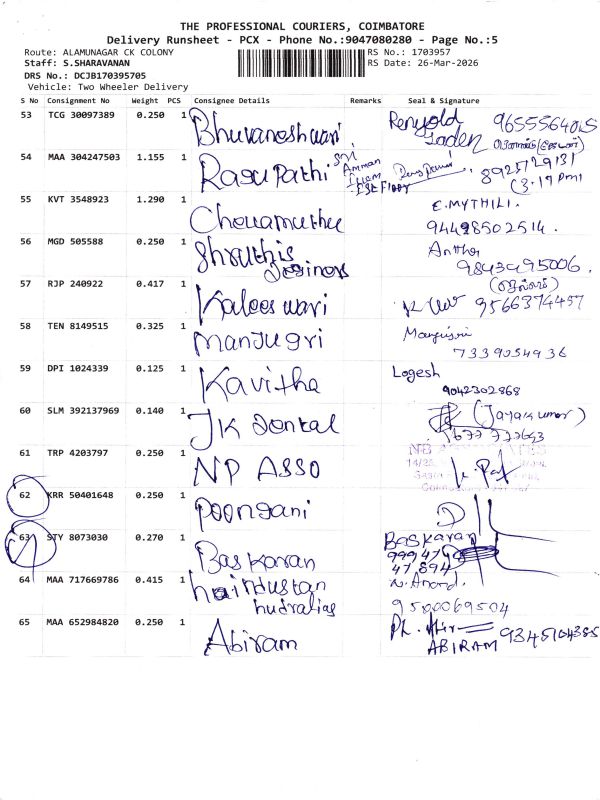 THE PROFESSIONAL COURIERS, COIMBATORE
Delivery Runsheet - PCX - Phone No.:9047080280 - Page No.:5
Route: ALAMUNAGAR CK COLONY
RS No.: 1703957
Staff: S.SHARAVANAN
RS Date: 26-Mar-2026
DRS No.: DCJB170395705
Vehicle: Two Wheeler Delivery
S No Consignment No Weight PCS Consignee Details Remarks Seal & Signature
53 TCG 30097389 0.250 1 Bhuvaneshwari 9655564015
54 MAA 304247503 1.155 1 Ragupathi Sri Amman Illam Ist Floor 8925129131
(3.17 pm)
55 KVT 3548923 1.290 1 E.MYTHILI.
94498502514.
56 MGD 505588 0.250 1 Shruthis
9843495006.
57 RJP 240922 0.417 1 Kaleeswari 9566374457
58 TEN 8149515 0.325 1 Manjugri
7339054936
59 DPI 1024339 0.125 1 Kavitha Logesh
9042302868
60 SLM 392137969 0.140 1 JK Dental (Jayakumar)
61 TRP 4203797 0.250 1 NP ASSO
62 KRR 50401648 0.250 1 Poongani
63 STY 8073030 0.270 1 Baskaran Baskaran
999476
47894
64 MAA 717669786 0.415 1 haindustan hudralias N. Anand.
9500069504
65 MAA 652984820 0.250 1 Abiram ABIRAM 9345104385